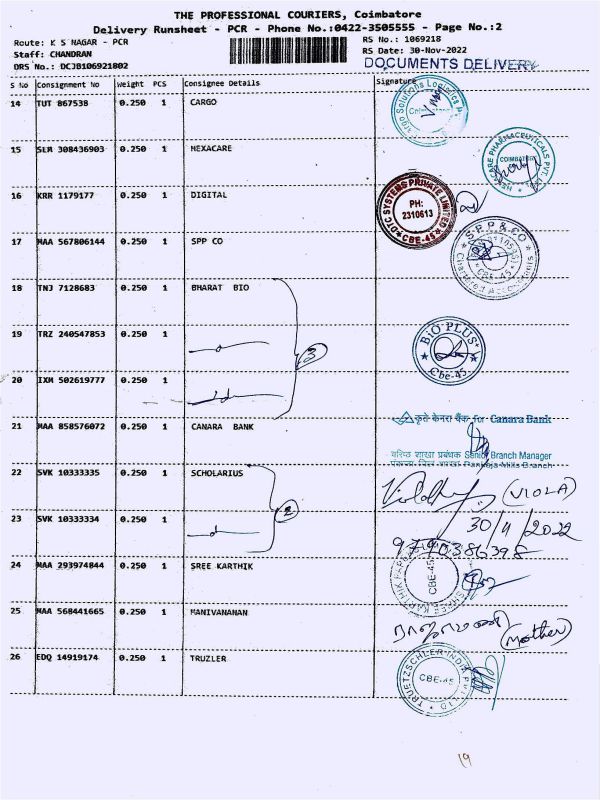 THE PROFESSIONAL COURIERS, Coimbatore
Delivery Runsheet - PCR - Phone No.:0422-3505555 - Page No.:2
Route: K S NAGAR - PCR
RS No.: 1069218
Staff: CHANDRAN
RS Date: 30-Nov-2022
DRS No.: DCJB106921802
DOCUMENTS DELIVERY
S No Consignment No Weight PCS Consignee Details Signature
14 TUT 867538 0.250 1 CARGO
15 SLM 308436903 0.250 1 HEXACARE
HEXACARE PHARMACEUTICALS PVT. LTD
COIMBATORE
16 KRR 1179177 0.250 1 DIGITAL
DTC SYSTEMS PRIVATE LIMITED
PH:
2310613
CBE-45
17 MAA 567806144 0.250 1 SPP CO
S P P & CO
CBE-45
Chartered Accountants
18 TNJ 7128683 0.250 1 BHARAT BIO
19 TRZ 240547853 0.250 1
3
BIO PLUS
Cbe-45
20 IXM 502619777 0.250 1
21 MAA 858576072 0.250 1 CANARA BANK
कृते केनरा बैंक for Canara Bank
वरिष्ठ शाखा प्रबंधक Senior Branch Manager
Pankaja Mills Branch
22 SVK 10333335 0.250 1 SCHOLARIUS
(VIOLA)
23 SVK 10333334 0.250 1
2
30/11/2022
9790386398
24 MAA 293974844 0.250 1 SREE KARTHIK
CBE-45
25 MAA 568441665 0.250 1 MANIVANANAN
(Mother)
26 EDQ 14919174 0.250 1 TRUZLER
TRUETZSCHLER INDIA PVT LTD
CBE-45
19